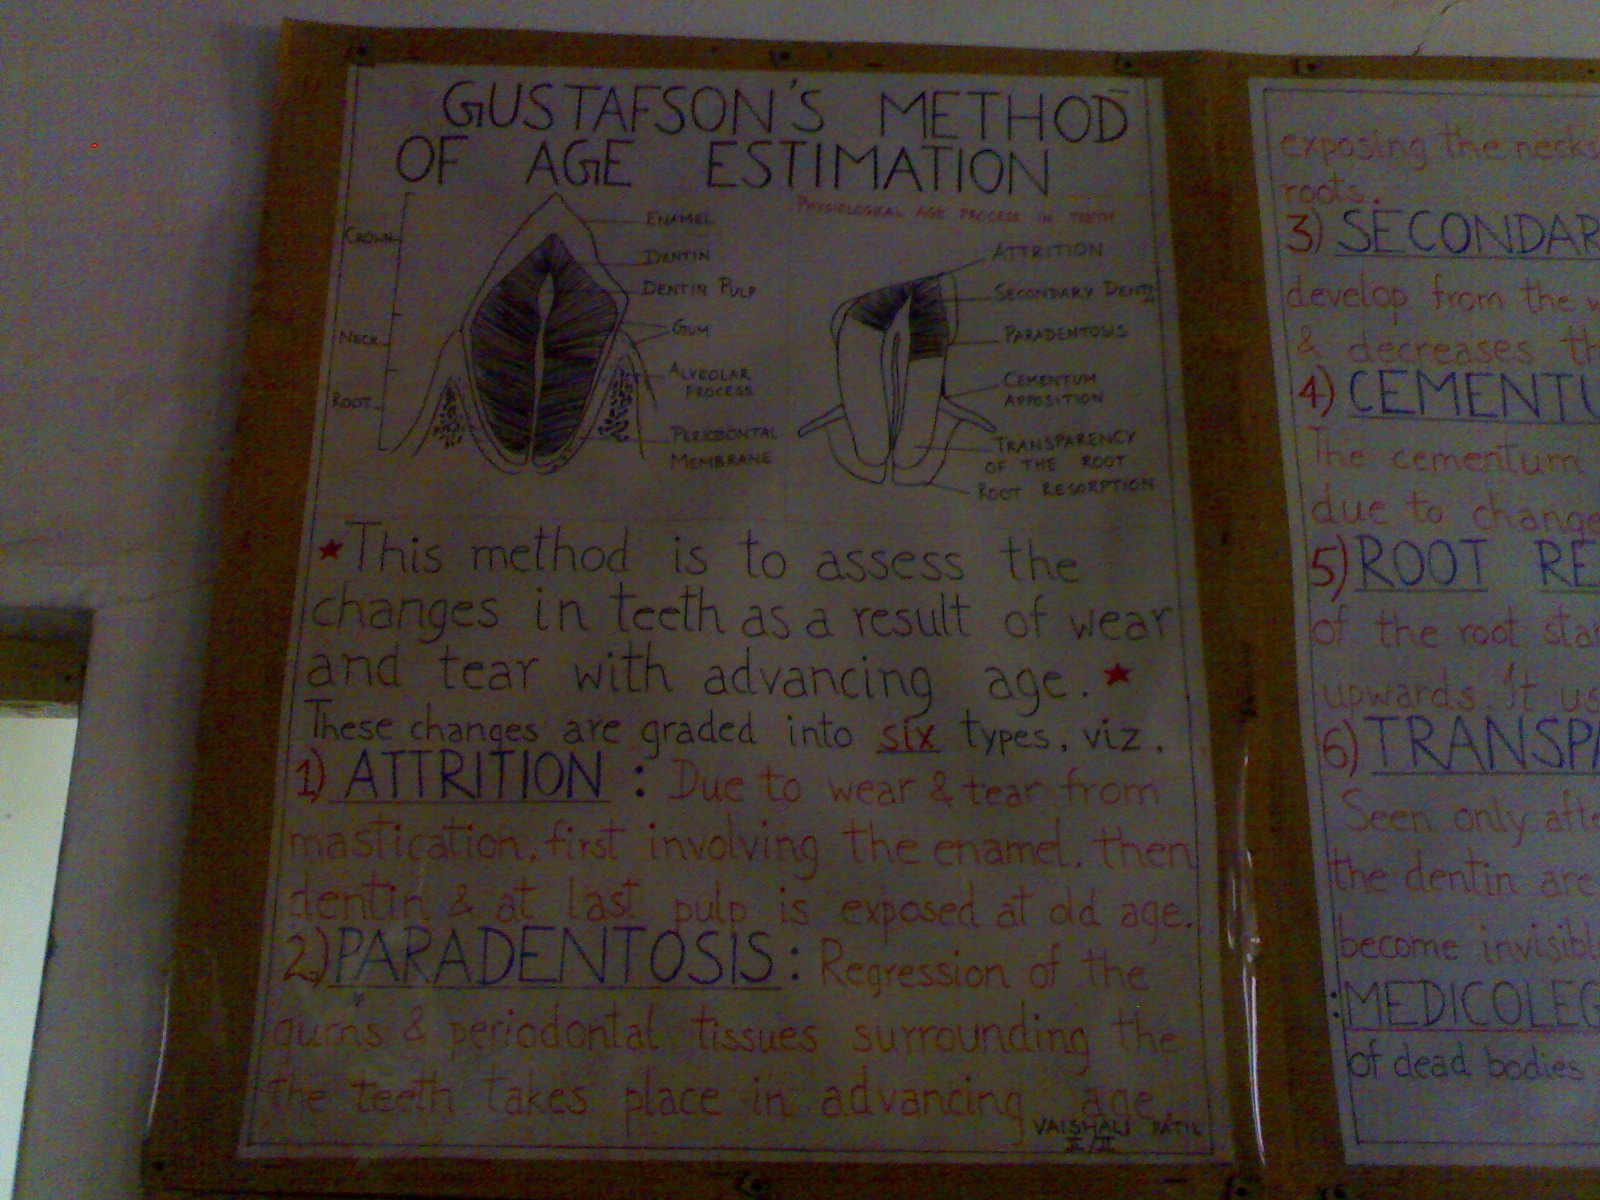 GUSTAFSON'S METHOD
OF AGE ESTIMATION
CROWN
NECK
ROOT
ENAMEL
DENTIN
DENTIN PULP
GUM
ALVEOLAR
PROCESS
PERIODONTAL
MEMBRANE
PHYSIOLOGICAL AGE PROCESS IN TEETH
ATTRITION
SECONDARY DENTIN
PARADENTOSIS
CEMENTUM
APPOSITION
TRANSPARENCY
OF THE ROOT
ROOT RESORPTION
★This method is to assess the
changes in teeth as a result of wear
and tear with advancing age.★
These changes are graded into six types, viz.
1) ATTRITION : Due to wear & tear from
mastication, first involving the enamel, then
dentin & at last pulp is exposed at old age.
2) PARADENTOSIS : Regression of the
gums & periodontal tissues surrounding the
the teeth takes place in advancing age.
VAISHALI PATIL
II/II
exposing the necks
roots.
3) SECONDAR
develop from the w
& decreases th
4) CEMENTU
The cementum
due to change
5) ROOT RE
of the root sta
upwards. It us
6) TRANSPA
Seen only afte
the dentin are
become invisibl
: MEDICOLEG
of dead bodies